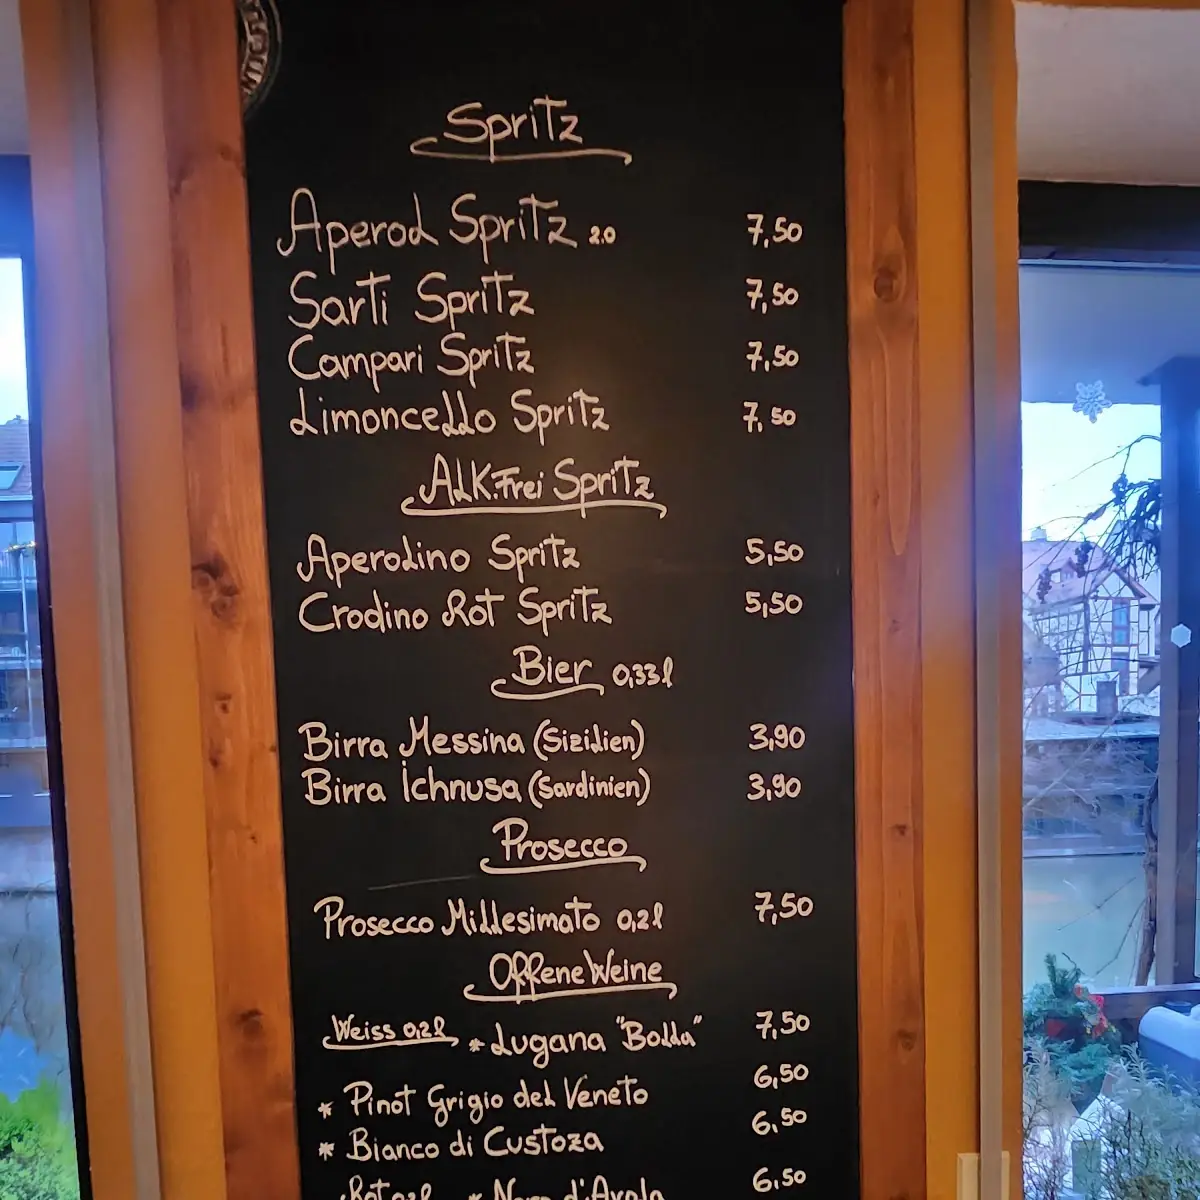 Spritz
Aperol Spritz 2.0 7,50
Sarti Spritz 7,50
Campari Spritz 7,50
Limoncello Spritz 7,50
Alk.Frei Spritz
Aperolino Spritz 5,50
Crodino Rot Spritz 5,50
Bier 0,33l
Birra Messina (Sizilien) 3,90
Birra Ichnusa (Sardinien) 3,90
Prosecco
Prosecco Millesimato 0,2l 7,50
Offene Weine
Weiss 0,2l * Lugana "Bolla" 7,50
* Pinot Grigio del Veneto 6,50
* Bianco di Custoza 6,50
Rot 0,2l * Nero d'Avola 6,50